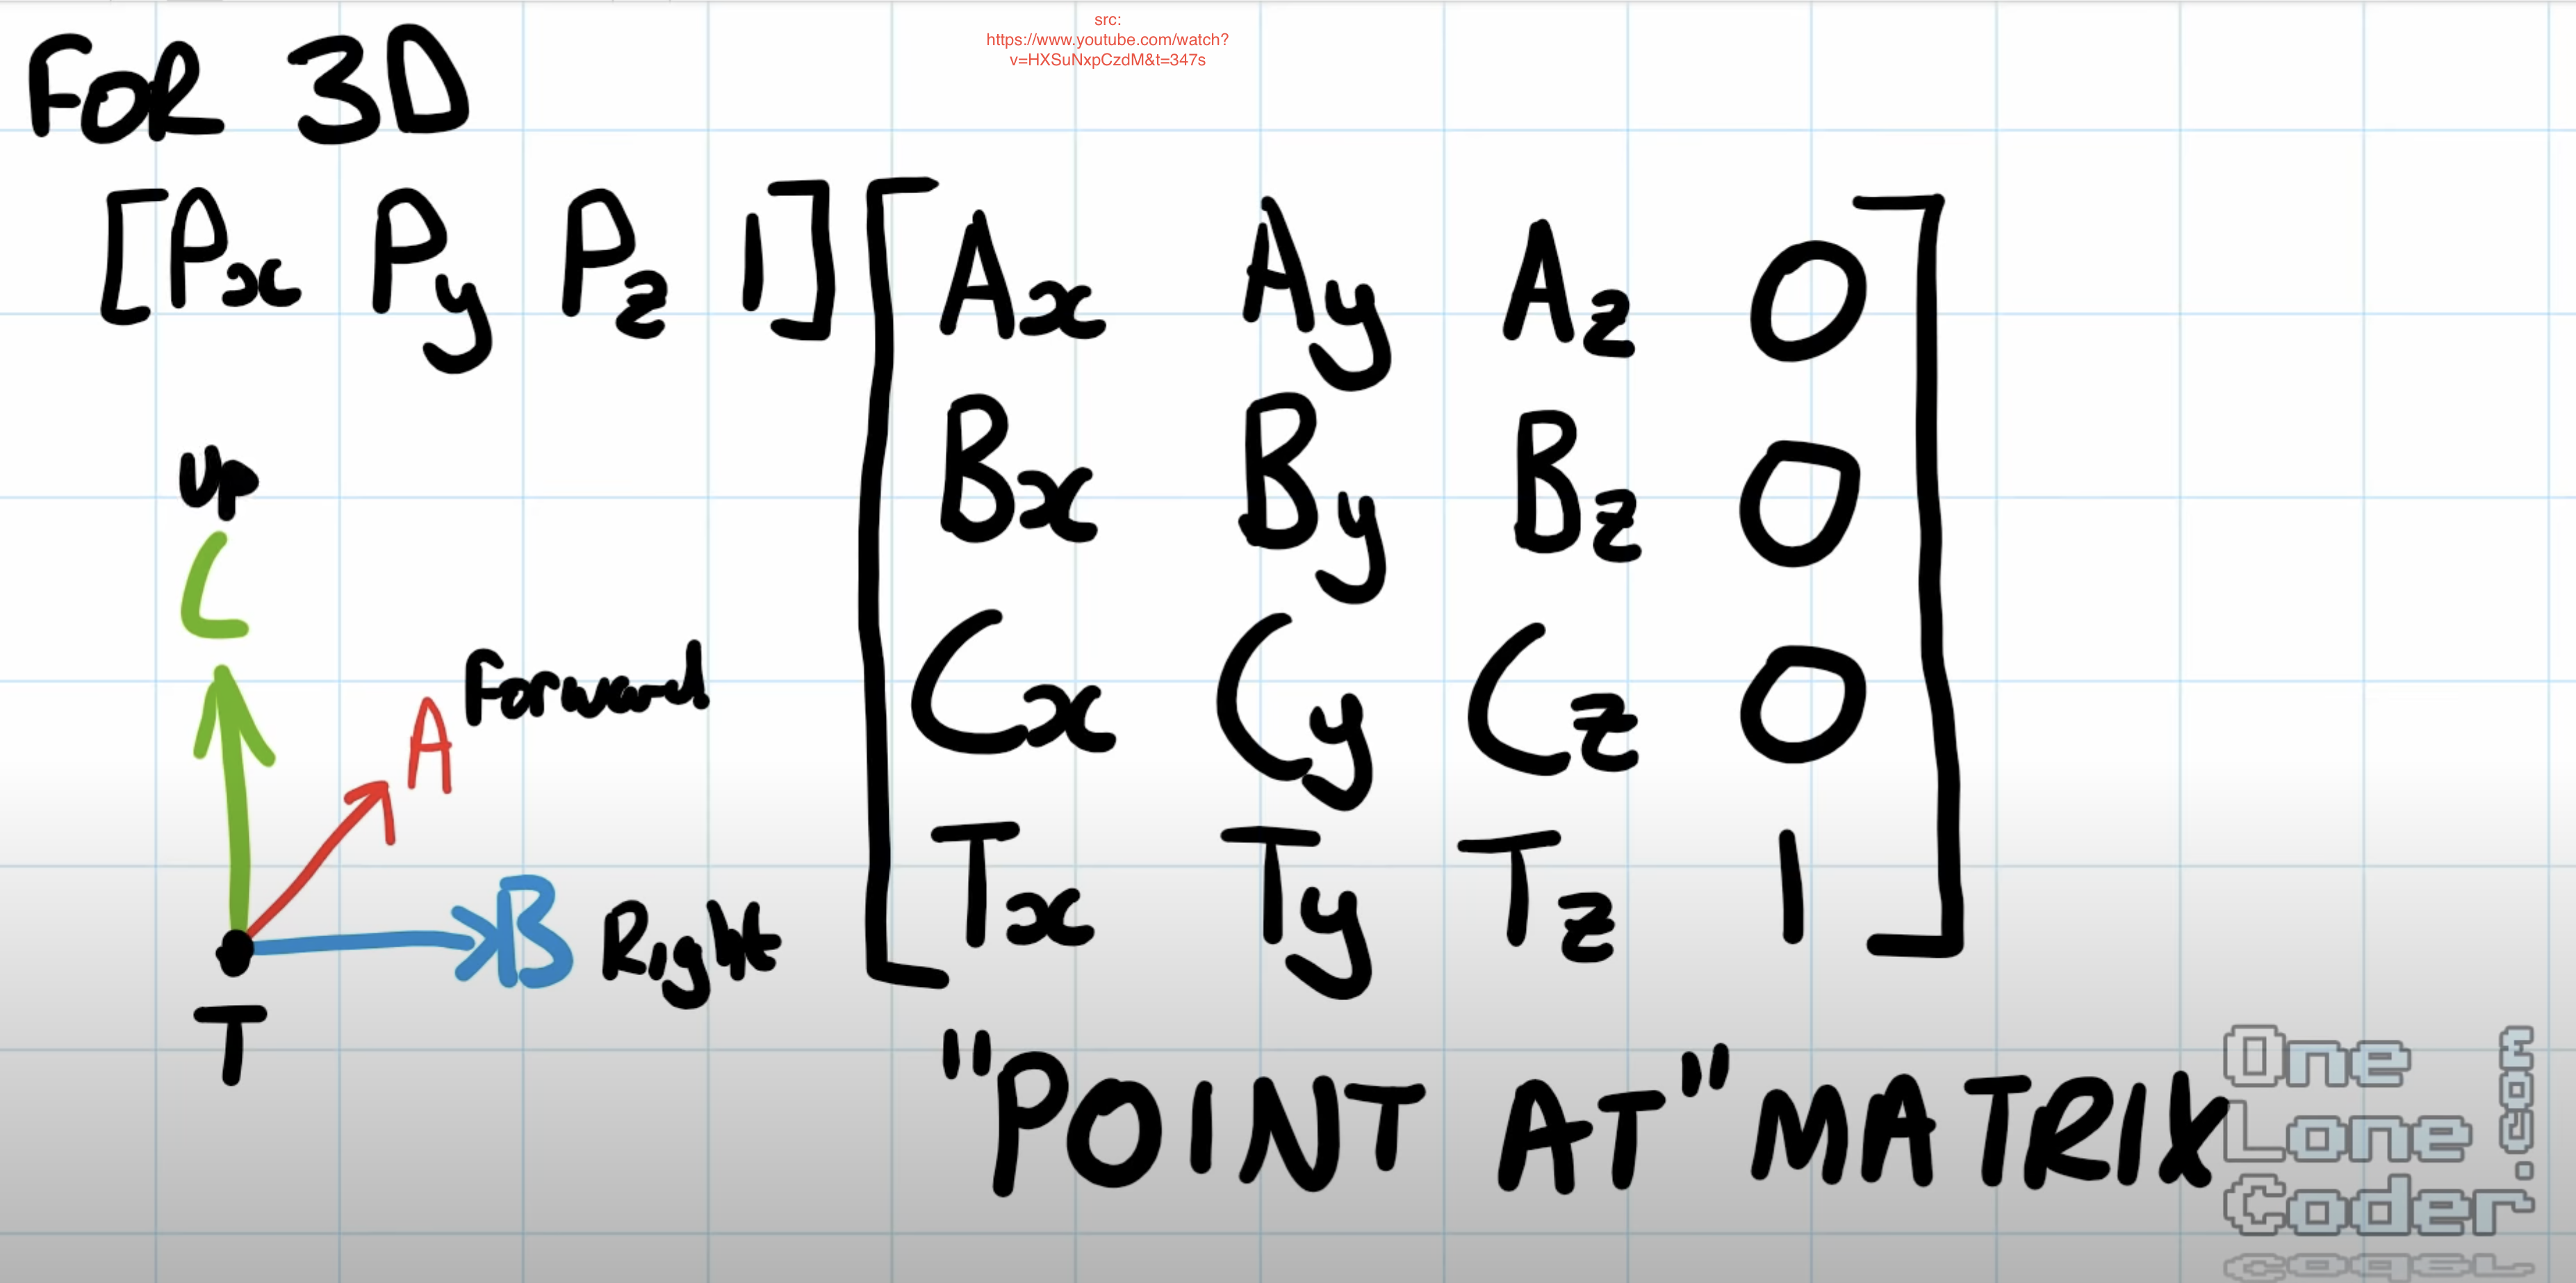 src:
https://www.youtube.com/watch?
v=HXSuNxpCzdM&t=347s
FOR 3D
[Px Py Pz 1] [Ax Ay Az 0
Bx By Bz 0
Cx Cy Cz 0
Tx Ty Tz 1]
Up
C
A Forward
B Right
T
"POINT AT" MATRIX
One
Lone
Coder.
com